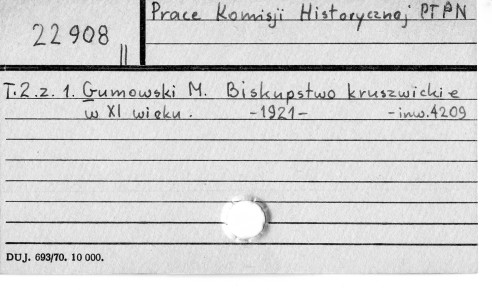 Prace Komisji Historycznej PTPN
22908 II
T.2.z.1. Gumowski M. Biskupstwo kruszwickie
w XI wieku. -1921- -inw.4209
DUJ. 693/70. 10 000.